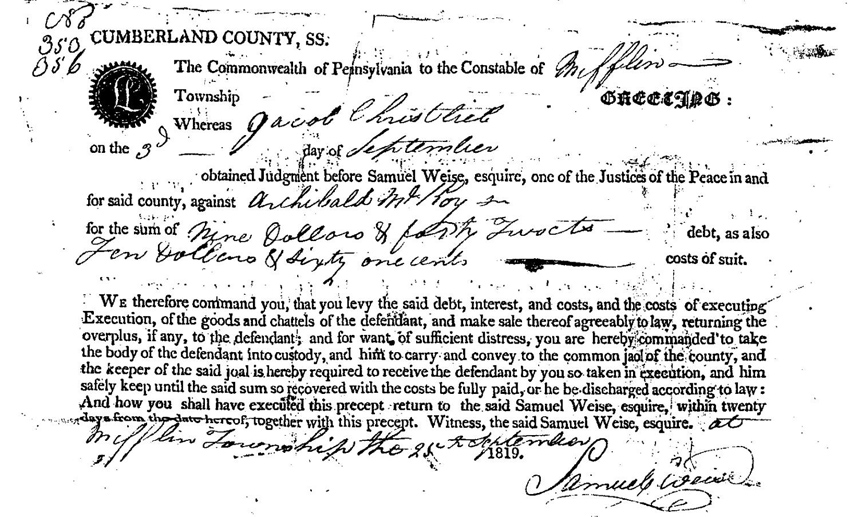 No
350
356
CUMBERLAND COUNTY, SS.
The Commonwealth of Pennsylvania to the Constable of Mifflin
Township GREETING:
Whereas Jacob Christlieb
on the 3d day of September
obtained Judgment before Samuel Weise, esquire, one of the Justices of the Peace in and
for said county, against Archibald McCoy
for the sum of Nine Dollars & forty Two cts debt, as also
Ten Dollars & Sixty one cents costs of suit.
WE therefore command you, that you levy the said debt, interest, and costs, and the costs of executing
Execution, of the goods and chattels of the defendant, and make sale thereof agreeably to law, returning the
overplus, if any, to the defendant; and for want of sufficient distress, you are hereby commanded to take
the body of the defendant into custody, and him to carry and convey to the common jaol of the county, and
the keeper of the said joal is hereby required to receive the defendant by you so taken in execution, and him
safely keep until the said sum so recovered with the costs be fully paid, or he be discharged according to law:
And how you shall have executed this precept return to the said Samuel Weise, esquire, within twenty
days from the date hereof, together with this precept. Witness, the said Samuel Weise, esquire. at
Mifflin Township the September
1819.
Samuel Weise